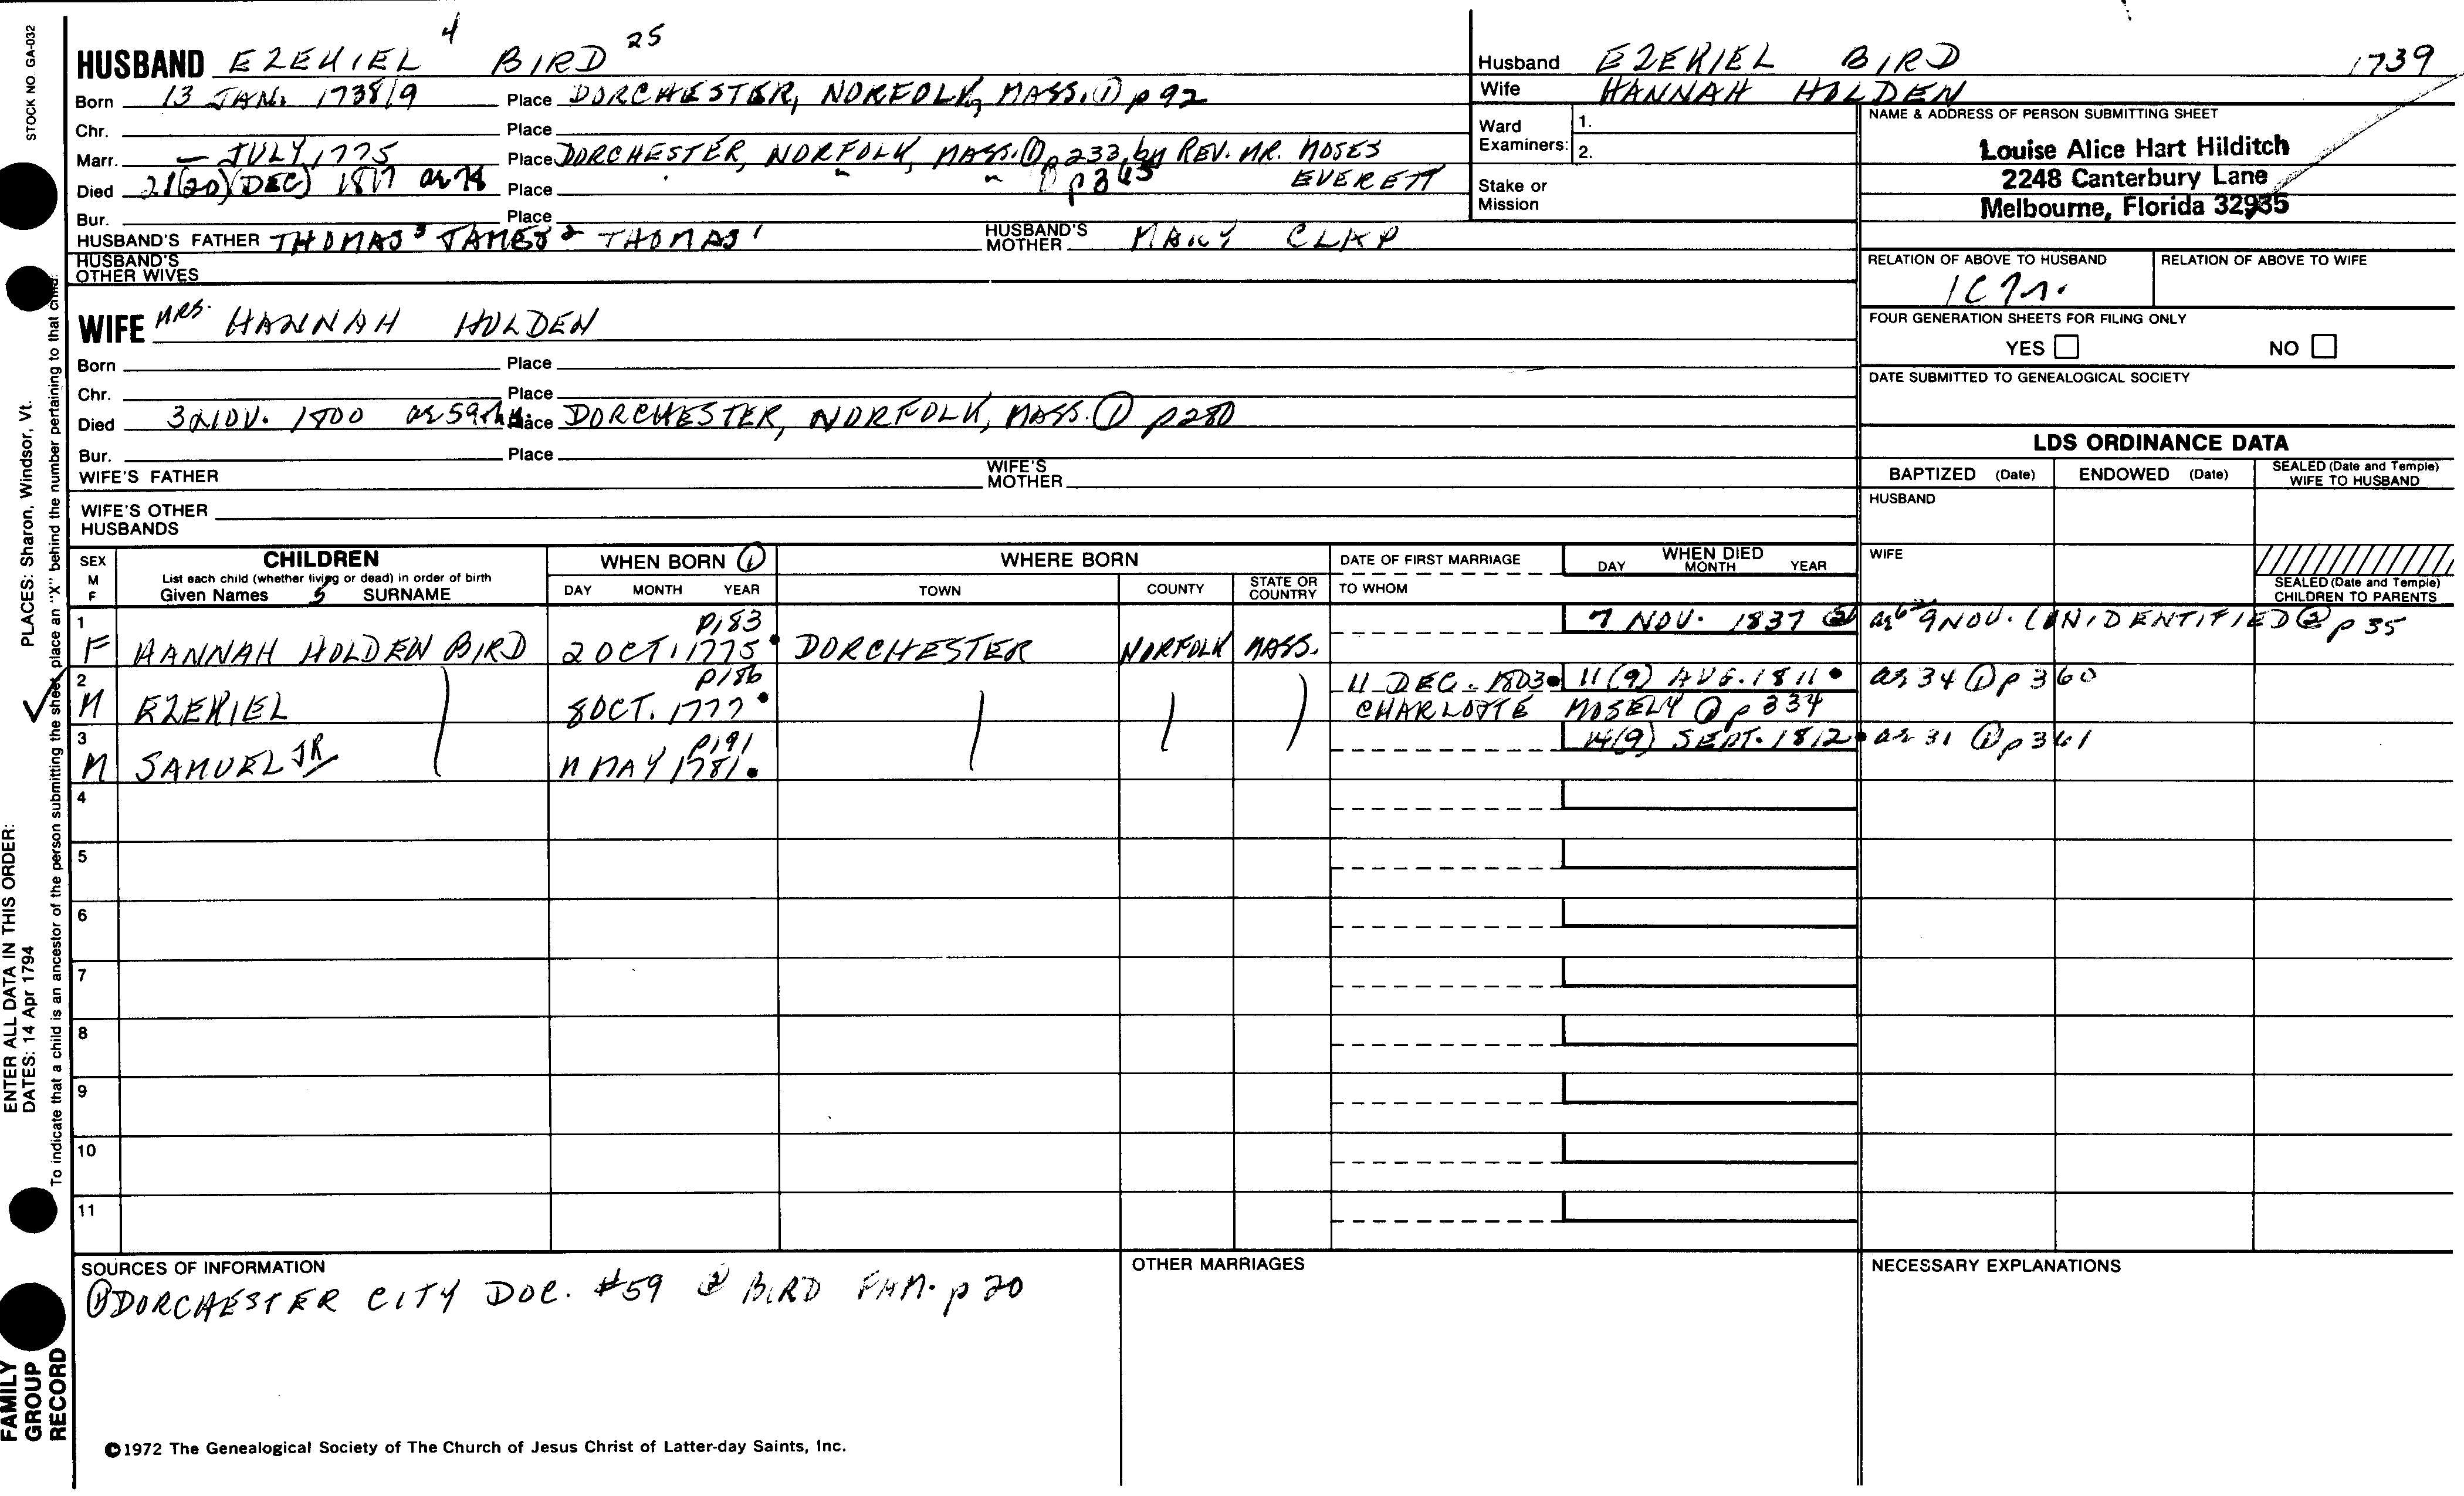 HUSBAND EZEKIEL 4 BIRD 25
Born 13 JAN. 1738/9 Place DORCHESTER, NORFOLK, MASS. ① p 92
Chr. Place
Marr. — JULY 1775 Place DORCHESTER, NORFOLK, MASS. ① p 233, by REV. MR. MOSES
EVERETT
Died 21(20)(DEC) 1817 ae 78 Place ① p 365
Bur. Place
HUSBAND'S FATHER THOMAS 3 JAMES 2 THOMAS 1 HUSBAND'S MOTHER MARY CLAP
HUSBAND'S OTHER WIVES
WIFE MRS. HANNAH HOLDEN
Born Place
Chr. Place
Died 3 NOV. 1800 ae 59 Place DORCHESTER, NORFOLK, MASS. ① p 280
Bur. Place
WIFE'S FATHER WIFE'S MOTHER
WIFE'S OTHER HUSBANDS
Husband EZEKIEL BIRD 1739
Wife HANNAH HOLDEN
Ward Examiners: 1.
2.
Stake or Mission
NAME & ADDRESS OF PERSON SUBMITTING SHEET
Louise Alice Hart Hilditch
2248 Canterbury Lane
Melbourne, Florida 32935
RELATION OF ABOVE TO HUSBAND RELATION OF ABOVE TO WIFE
FOUR GENERATION SHEETS FOR FILING ONLY
YES NO
DATE SUBMITTED TO GENEALOGICAL SOCIETY
LDS ORDINANCE DATA
BAPTIZED (Date) ENDOWED (Date) SEALED (Date and Temple) WIFE TO HUSBAND
HUSBAND
WIFE
SEALED (Date and Temple) CHILDREN TO PARENTS
SEX M F CHILDREN WHEN BORN ① WHERE BORN DATE OF FIRST MARRIAGE WHEN DIED
List each child (whether living or dead) in order of birth
Given Names 5 SURNAME DAY MONTH YEAR TOWN COUNTY STATE OR COUNTRY TO WHOM DAY MONTH YEAR
1 p 183 7 NOV. 1837 ② 9 NOV. (UNIDENTIFIED ② p 35
F HANNAH HOLDEN BIRD 2 OCT. 1775 DORCHESTER NORFOLK MASS.
2 p 186 11 DEC. 1803 11(9) AUG. 1811 ae 34 ① p 360
M EZEKIEL 8 OCT. 1777 CHARLOTTE MOSELY ① p 334
3 p 191 14(9) SEPT. 1812 ae 31 ① p 361
M SAMUEL JR 11 MAY 1781
4
5
6
7
8
9
10
11
SOURCES OF INFORMATION OTHER MARRIAGES NECESSARY EXPLANATIONS
① DORCHESTER CITY DOC. #59 ② BIRD FAM. p 20
©1972 The Genealogical Society of The Church of Jesus Christ of Latter-day Saints, Inc.
STOCK NO GA-032
PLACES: Sharon, Windsor, Vt.
ENTER ALL DATA IN THIS ORDER:
DATES: 14 Apr 1794
To indicate that a child is an ancestor of the person submitting the sheet, place an "X" behind the number pertaining to that child.
FAMILY GROUP RECORD